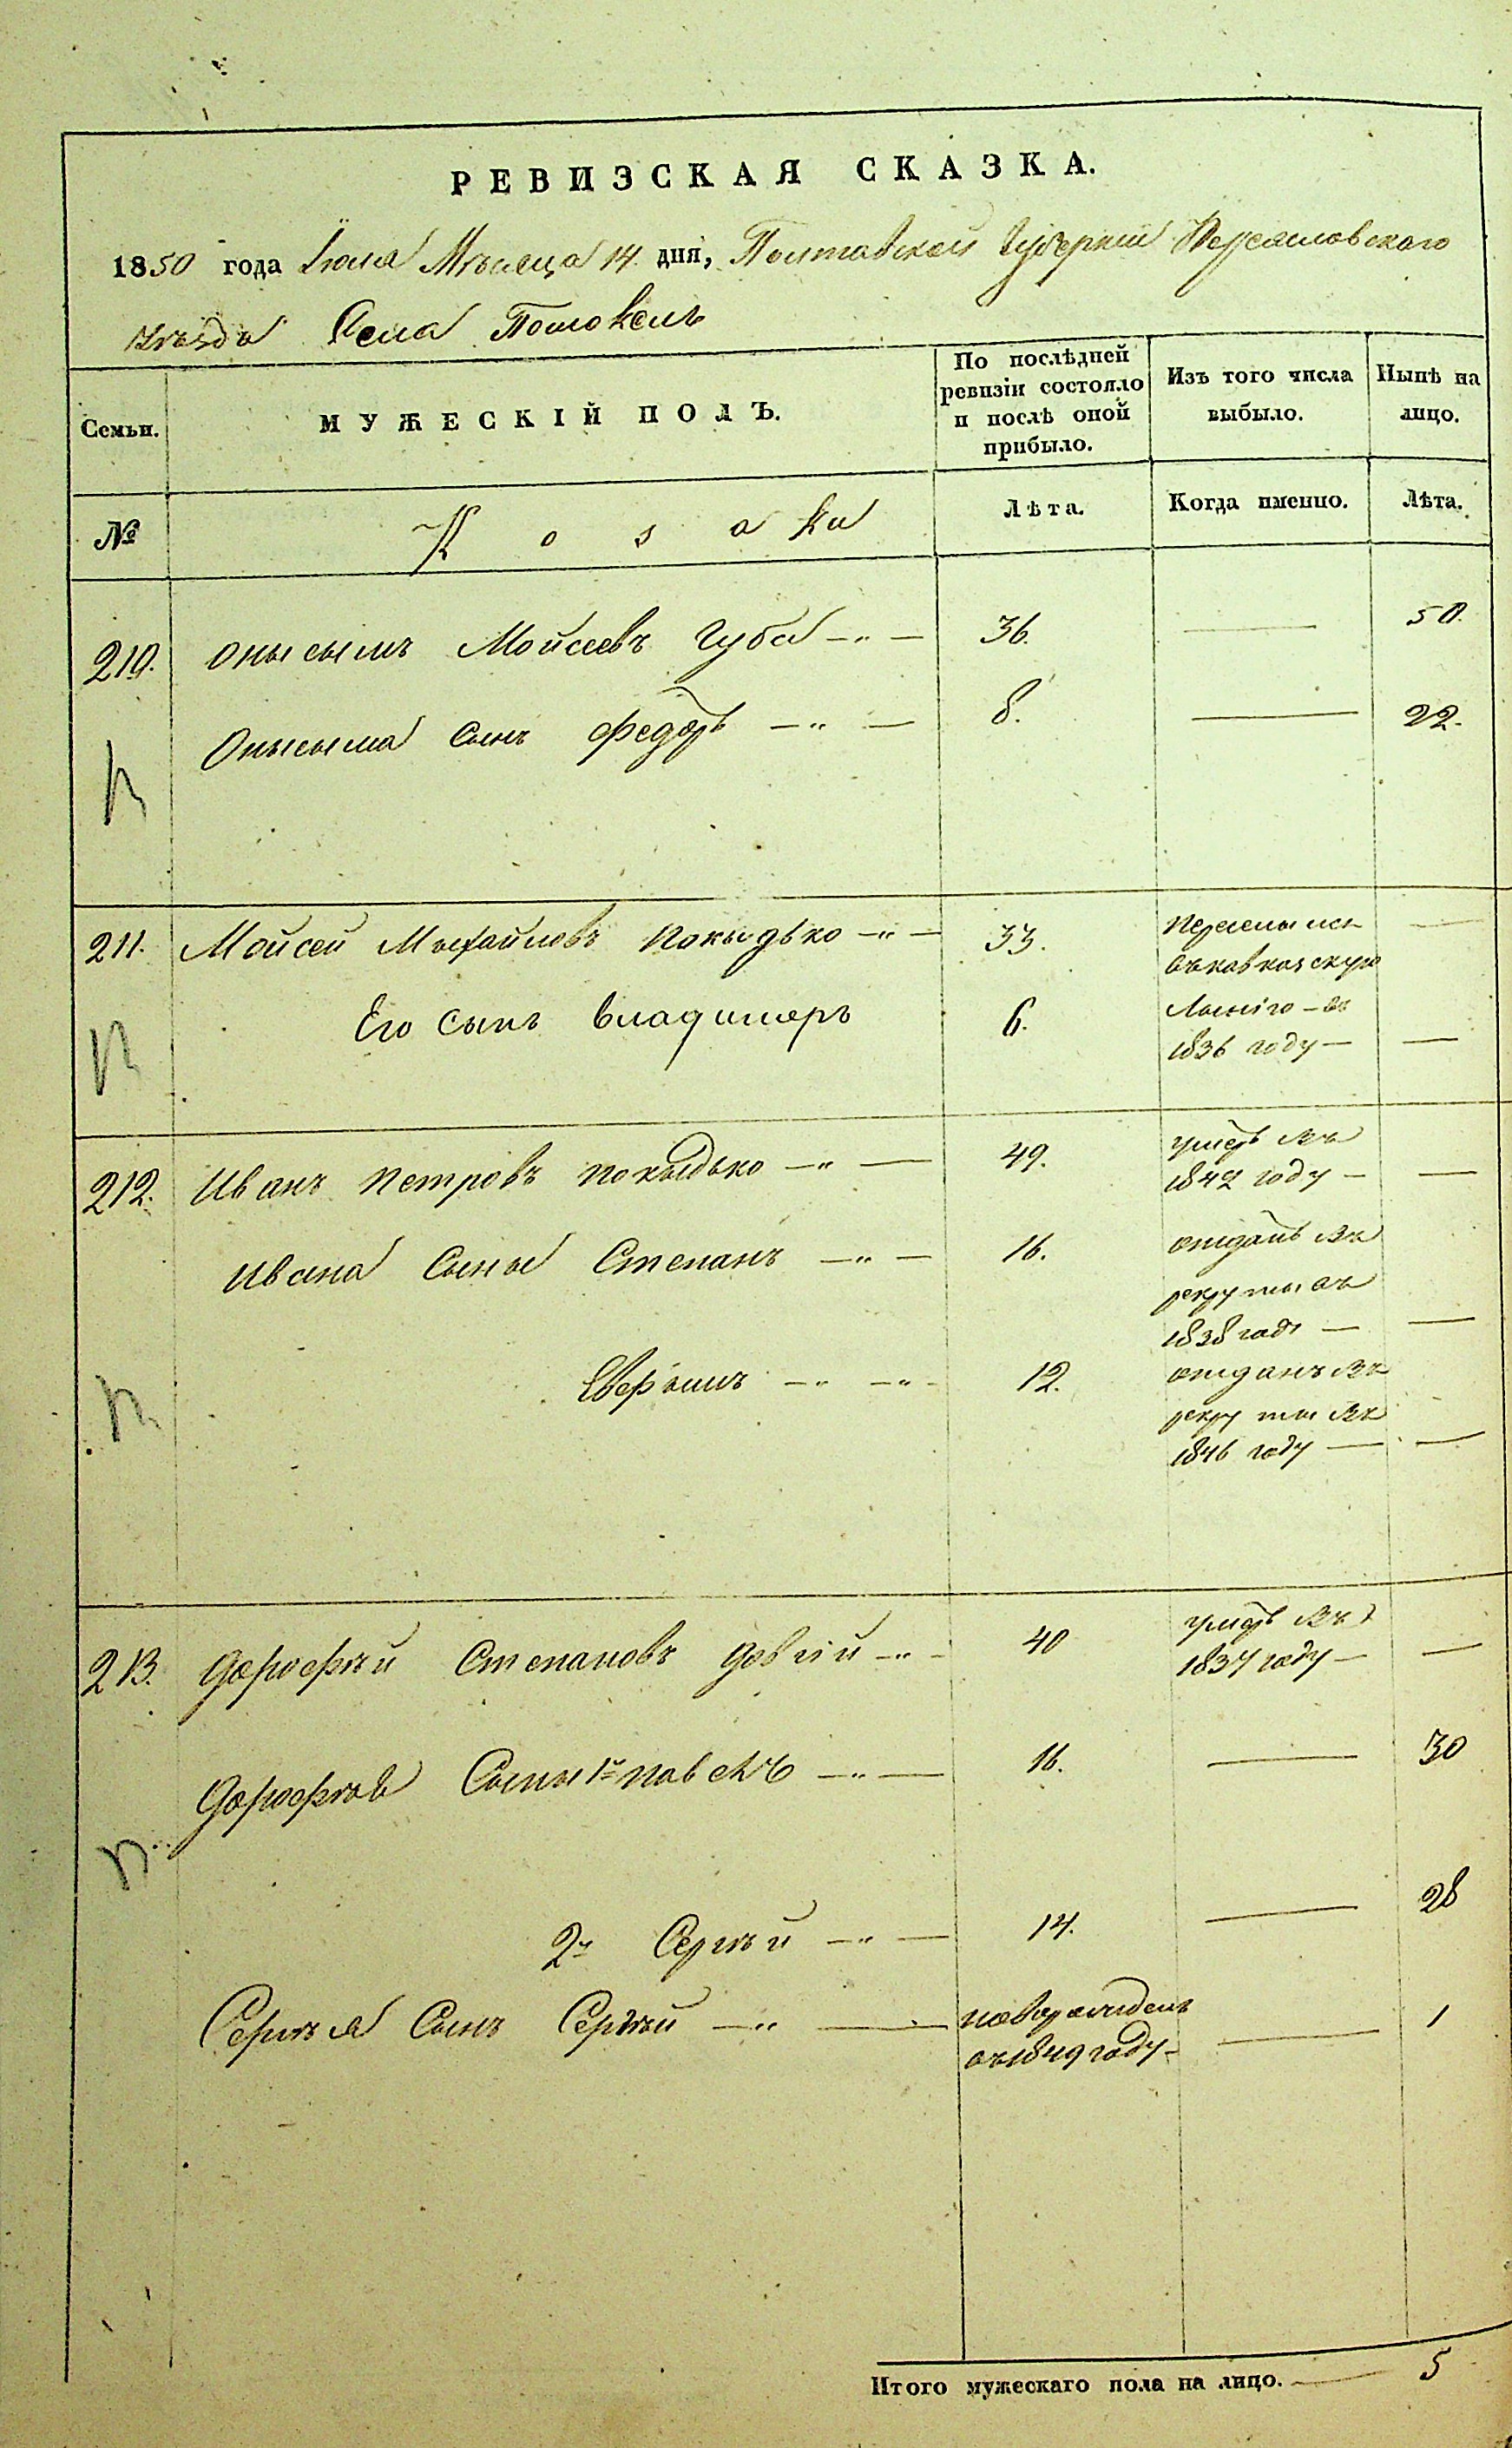 РЕВИЗСКАЯ СКАЗКА.
1850 года Iюля Мѣсяца 14 дня, Полтавской Губернiи Переяславского
уѣзда Села Помоклъ
Семьи.
МУЖЕСКIЙ ПОЛЪ.
По послѣдней
ревизiи состояло
и послѣ оной
прибыло.
Изъ того числа
выбыло.
Нынѣ на
лицо.
№
Козаки
Лѣта.
Когда именно.
Лѣта.
210. Онысымъ Мойсеевъ Губа —„— 36. — 50.
Онысыма сынъ Федоръ —„— 8. — 22.
211. Мойсей Михайловъ Покыдько —„— 33.
Переселился
въ кавказскую
Его сынъ Владимеръ 6.
Лынiю — въ
1836 году — —
212. Иванъ Петровъ Покыдько —„— 49.
умеръ въ
1842 году — —
Ивана Сыны Степанъ —„— 16.
отданъ въ
рекруты въ
1838 годѣ — —
12.
отданъ въ
рекруты въ
1846 году — —
213. Дорофѣй Степановъ Довгiй —„— 40
умеръ въ
1837 году — —
Дорофѣя Сыны 1й Павелъ —„— 16. — 30
2й Сергѣй —„— 14. — 28
Сергѣя Сынъ Сергѣй —„— новорожденъ — 1
въ 1849 году —
Итого мужескаго пола на лицо. — 5